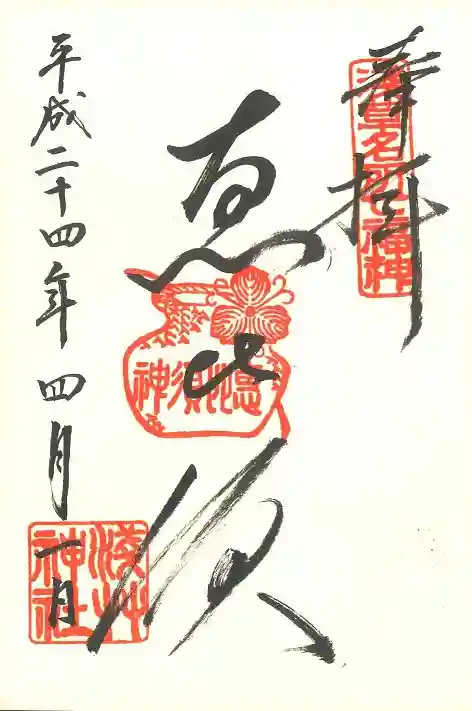 奉拝
浅草名所七福神
恵比須
恵比須神
平成二十四年四月一日
浅草神社